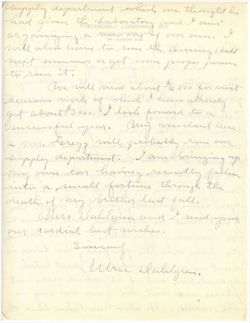 supply department which we thought he
had given the Laboratory and I am
organizing a new one of our own. I
will also have to run the dining hall
next summer or get some proper person
to run it.
We will need about $ 000 for next
seasons work of which I have already
got about $3000. I look forward to a
successful year. My assistant here
a Mrs. will probably run our
supply department. I am bringing up
my own car having recently fallen
into a small fortune through the
death of my brother last fall.
Mrs. Dahlgren and I send you
our cordial best wishes.
Sincerely
Ulric Dahlgren.